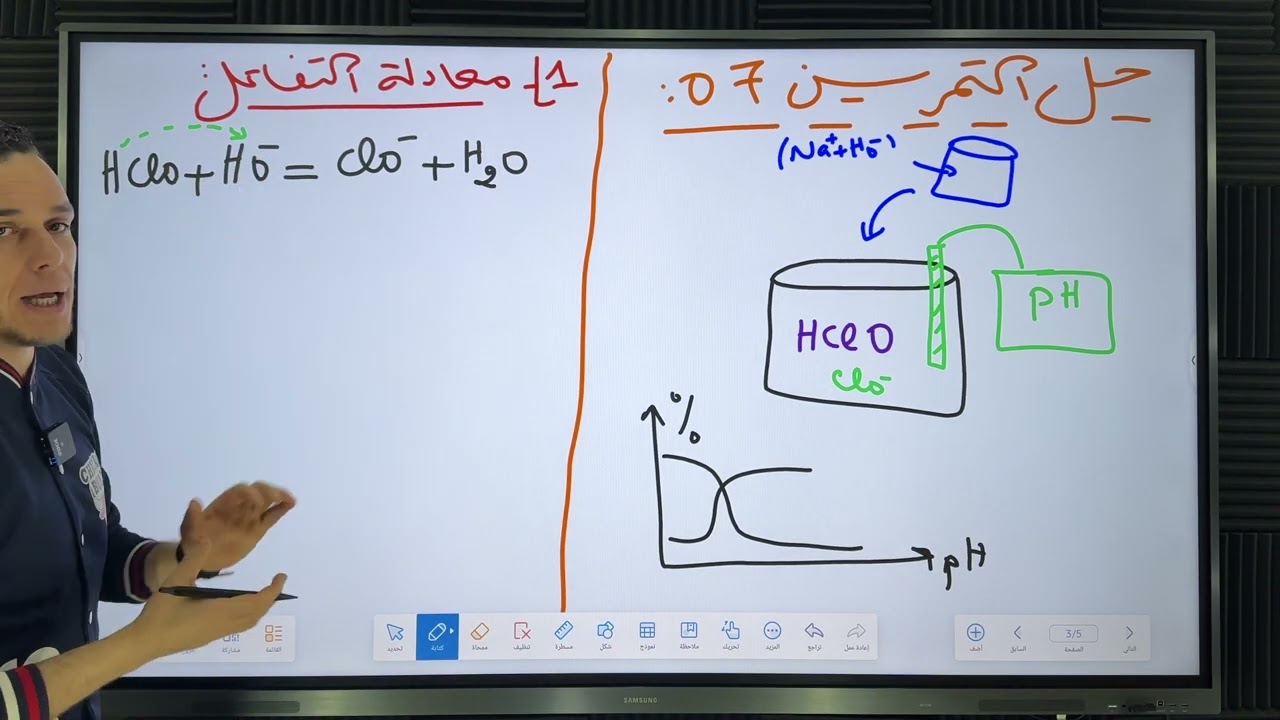 حل التمرين 07:
(Na⁺+HO⁻)
pH
HClO
ClO⁻
%
pH
1- معادلة التفاعل:
HClO + HO⁻ = ClO⁻ + H₂O
تحديد
كتابة
ممحاة
تنظيف
مسطرة
شكل
نموذج
ملاحظة
تحريك
المزيد
تراجع
إعادة عمل
القائمة
مشاركة
أضف
السابق
3/5
الصفحة
التالي
SAMSUNG